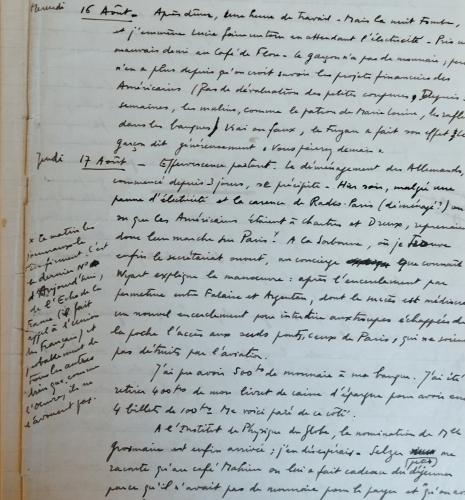 Mercredi 16 Août. - Après dîner, une heure de travail - Mais la nuit tombe,
et j'emmène Lucie faire un tour en attendant l'électricité - Pris un
mauvais demi au Café de Flore - le garçon n'a pas de monnaie ; per
n'en a plus depuis qu'on croit savoir les projets financiers des
Américains (Pas de dévaluation des petites coupures. Depuis
semaines, les malins, comme le patron de Marie Louise, les rafle
dans les banques) Vrai ou faux, le tuyau a fait son effet
garçon dit généreusement "Vous paierez demain"
Jeudi 17 Août - Effervescence partout - Le déménagement des Allemands,
commencé depuis 3 jours, se précipite - Hier soir, malgré une
panne d'électricité et la carence de Radio-Paris (déménagé ?) on
su que les Américains étaient à Chartres et Dreux, reprenaient
donc leur marche sur Paris. A la Sorbonne, où je
enfin le secrétariat ouvert, un concierge que connaît
Wyart explique la manoeuvre : après l'encerclement par
fermeture entre Falaise et Argentan, dont le succès est médiocre
un nouvel encerclement pour interdire aux troupes échappées de
la poche l'accès aux seuls ponts, ceux de Paris, qui ne soient
pas détruits par l'aviation.
J'ai pu avoir 500 frs de monnaie à ma banque. J'ai été
retirer 400 frs de mon livret de caisse d'épargne pour avoir
4 billets de 100 frs. Me voici paré de ce côté.
A l'Institut de Physique du Globe, la nomination de Mlle
est enfin arrivée ; j'en désespérais - Selzer me
raconte qu'au café Mahieu on lui a fait cadeau du déjeuner
parce qu'il n'avait pas de monnaie pour le payer et qu'on
x Ce matin les
journaux le
confirment. C'est
le dernier N°
d'Aujourd'hui,
de l'Echo de la
France (il fait
appel à l'union
des Français) et
probablement de
tous les autres
bien que, comme
l'Oeuvre, ils ne
l'avouent pas.